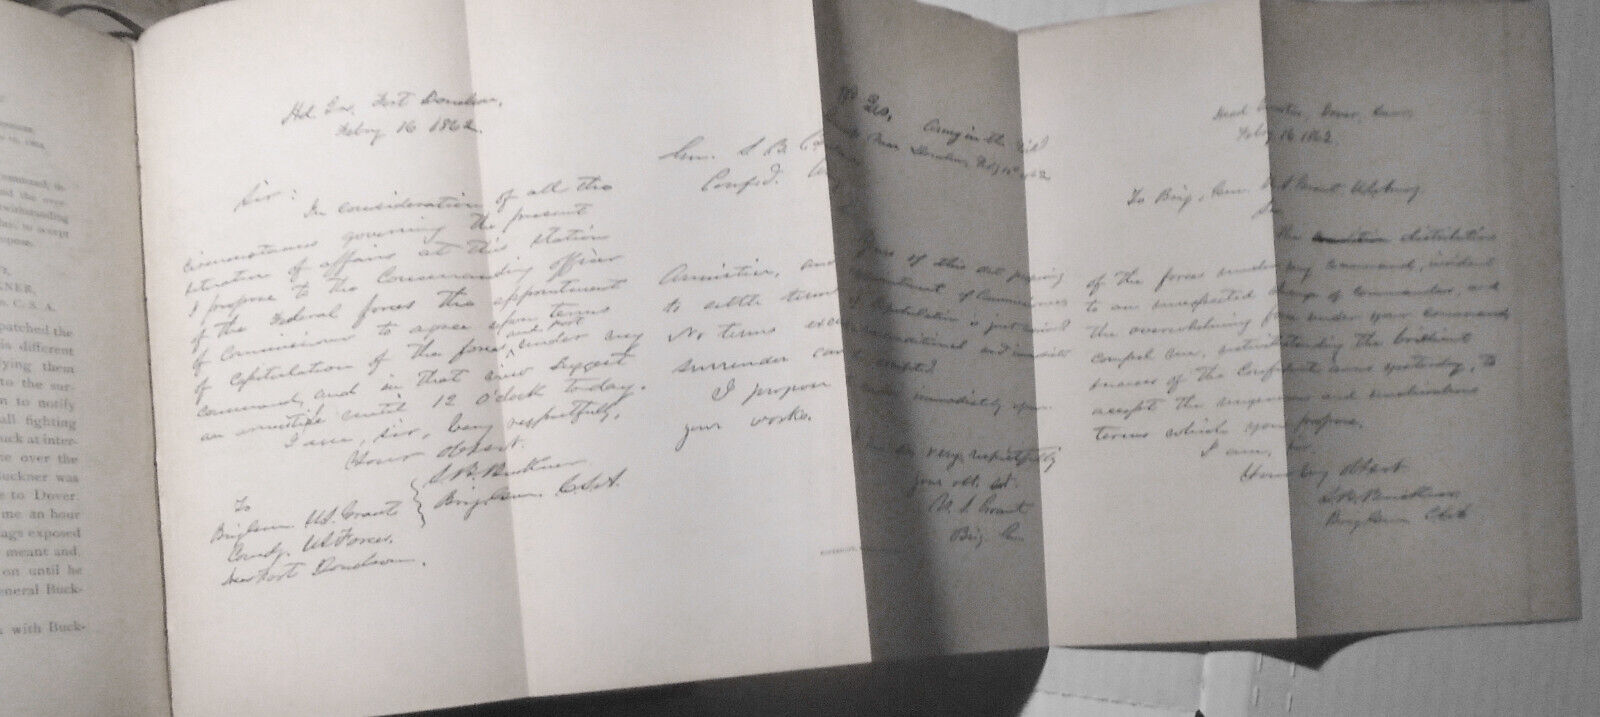 withstanding
to accept
propose.
NER,
C. S. A.
patched the
is different
ying them
to the sur-
n to notify
all fighting
uck at inter-
e over the
Buckner was
e to Dover.
me an hour
ags exposed
meant and
on until he
eneral Buck-
with Buck-
Hd. Qrs. Fort Donelson,
Feby 16 1862.
Sir:
In consideration of all the
circumstances governing the present
situation of affairs at this station
I propose to the Commanding officer
of the Federal forces the appointment
of Commissioners to agree upon terms
of capitulation of the forces and fort under my
command, and in that view suggest
an armistice until 12 o'clock today.
I am, sir, very respectfully,
Your obt sert.
S. B. Buckner
Brig Gen. C.S.A.
To
Brig Gen. U.S. Grant
Comdg. U.S. Forces
Near Fort Donelson.
Gen. S. B.
Confed.
Armistice, and
to settle terms
No terms
surrender can
I propose
your works.
Hd Qrs, Army in the Field
Feby 16th
of this date proposing
of Commissioners
of Capitulation is just received
unconditional and immediate
accepted.
move immediately upon
very respectfully
your obt. svt.
U. S. Grant
Brig. Gen
Head Quarters, Dover, Tenn.
Feby 16 1862.
To Brig. Gen. U. S. Grant U.S. Army
Sir
The distribution
of the forces under my command, incident
to an unexpected change of commanders, and
the overwhelming force under your command
compel me, notwithstanding the brilliant
success of the Confederate arms yesterday, to
accept the ungenerous and unchivalrous
terms which you propose.
I am, sir.
Your very obt sert
S. B. Buckner
Brig Gen C S A